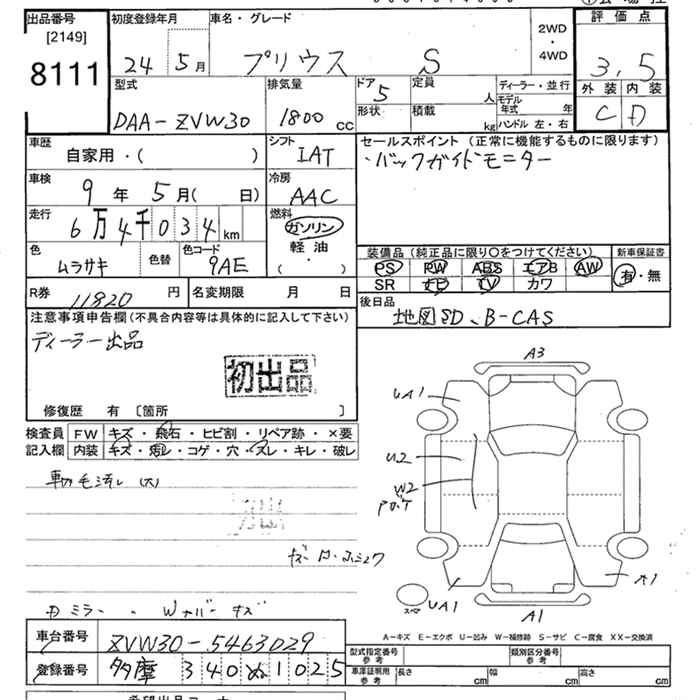 出品番号
[2149]
8111
初度登録年月
24 5月
車名・グレード
プリウス S
2WD
・
4WD
評価点
3,5
外装 内装
C D
型式
DAA-ZVW30
排気量
1800 cc
ドア
5
定員
人
形状
積載
kg
ディーラー・並行
モデル年式 年
ハンドル 左・右
車歴
自家用・( )
シフト
IAT
セールスポイント (正常に機能するものに限ります)
・バックガイドモニター
車検
9年 5月( 日)
冷房
AAC
走行
6万4千034km
燃料
ガソリン
軽油
( ・ )
色
ムラサキ
色替
色コード
9AE
装備品(純正品に限り○をつけてください)
PS PW ABS エアB AW
SR ナビ TV カワ
新車保証書
有・無
R券
11820円
名変期限 月 日
後日品
地図SD、B-CAS
注意事項申告欄(不具合内容等は具体的に記入して下さい)
ディーラー出品
初出品
修復歴 有 〔箇所 〕
検査員記入欄
FW キズ・飛石・ヒビ割・リペア跡・×要
内装 キズ・汚レ・コゲ・穴・スレ・キレ・破レ
A3
UA1
U2
W2
A1
スペア
UA1
A1
A-キズ E-エクボ U-凹み W-補修跡 S-サビ C-腐食 XX-交換済
車台番号
ZVW30-5463029
登録番号
多摩 340 ぬ 1025
型式指定番号
参考
類別区分番号
参考
車庫証明用
参考
長さ cm
幅 cm
高さ cm